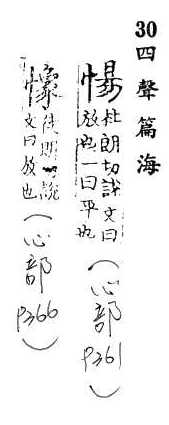 30四聲篇海
惕杜朗切説文曰放也一曰平也(心部P361)
懞徒朗切説文曰放也(心部P366)